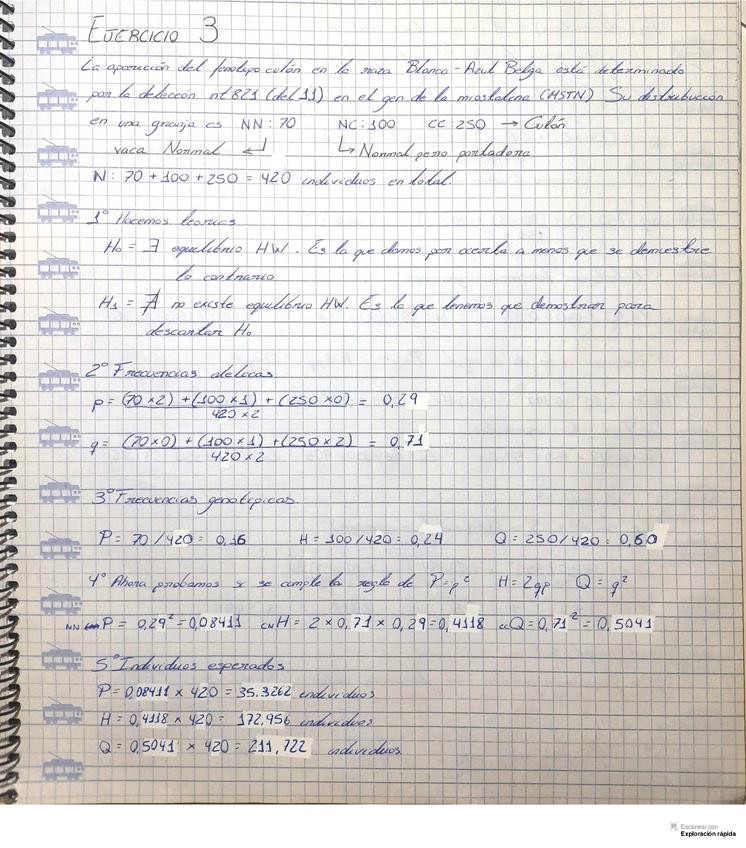 EJERCICIO 3
La aparición del fenotipo culón en la raza Blanco-Azul Belga está determinado
por la delección nt821 (del 11) en el gen de la miostatina (MSTN) Su distribución
en una granja es NN: 70 NC: 100 CC: 250 → Culón
vaca Normal ↵ ↳ Normal pero portadora
N: 70 + 100 + 250 = 420 individuos en total.
1° Hacemos teorías
H₀ = ∃ equilibrio HW. Es la que damos por cierta a menos que se demuestre
lo contrario
H₁ = ∄ no existe equilibrio HW. Es la que tenemos que demostrar para
descartar H₀
2° Frecuencias alélicas
p = (70 x 2) + (100 x 1) + (250 x 0) / 420 x 2 = 0,29
q = (70 x 0) + (100 x 1) + (250 x 2) / 420 x 2 = 0,71
3° Frecuencias genotípicas
P = 70 / 420 = 0,16 H = 100 / 420 = 0,24 Q = 250 / 420 = 0,60
4° Ahora probamos si se cumple la regla de P = p² H = 2qp Q = q²
NN P = 0,29² = 0,08411 CN H = 2 x 0,71 x 0,29 = 0,4118 CC Q = 0,71² = 0,5041
5° Individuos esperados
P = 0,08411 x 420 = 35.3262 individuos
H = 0,4118 x 420 = 172,956 individuos
Q = 0,5041 x 420 = 211,722 individuos
Escanear con
Exploración rápida